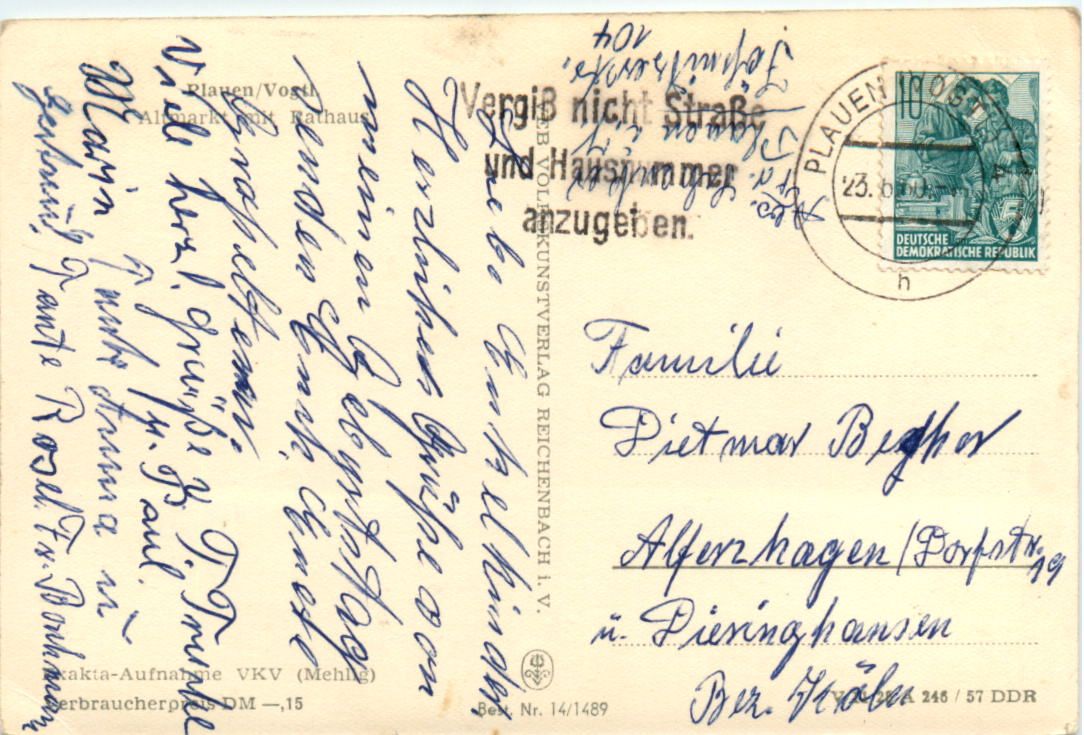 Plauen/Vogtl.
Altmarkt mit Rathaus
Liebe Enkelkinder
Herzliches Grüße von
meinem Geburtstag
senden Euch Eure
Großeltern.
Viele herzl. Grüße v. T. Trudel
u. Paul.
Maria Tante Anna u
Tante Rosel. Fr. Bochmann
Exakta-Aufnahme VKV (Mehlig)
Verbraucherpreis DM —,15
VEB VOLKSKUNSTVERLAG REICHENBACH i. V.
Best. Nr. 14/1489
Abs.
Plauen i/V
104
Vergiß nicht Straße
und Hausnummer
anzugeben.
PLAUEN (VOGTL)
23.
h
10
5
DEUTSCHE
DEMOKRATISCHE REPUBLIK
Familie
Dietmar
Alferzhagen/Dorfstr. 19
u. Dieringhausen
Bez. Köln
A 246 / 57 DDR